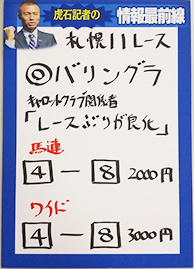 虎石記者の
情報最前線
札幌11レース
◎バリングラ
キャロットクラブ関係者
「レースぶりが良化」
馬連
4-8 2000円
ワイド
4-8 3000円